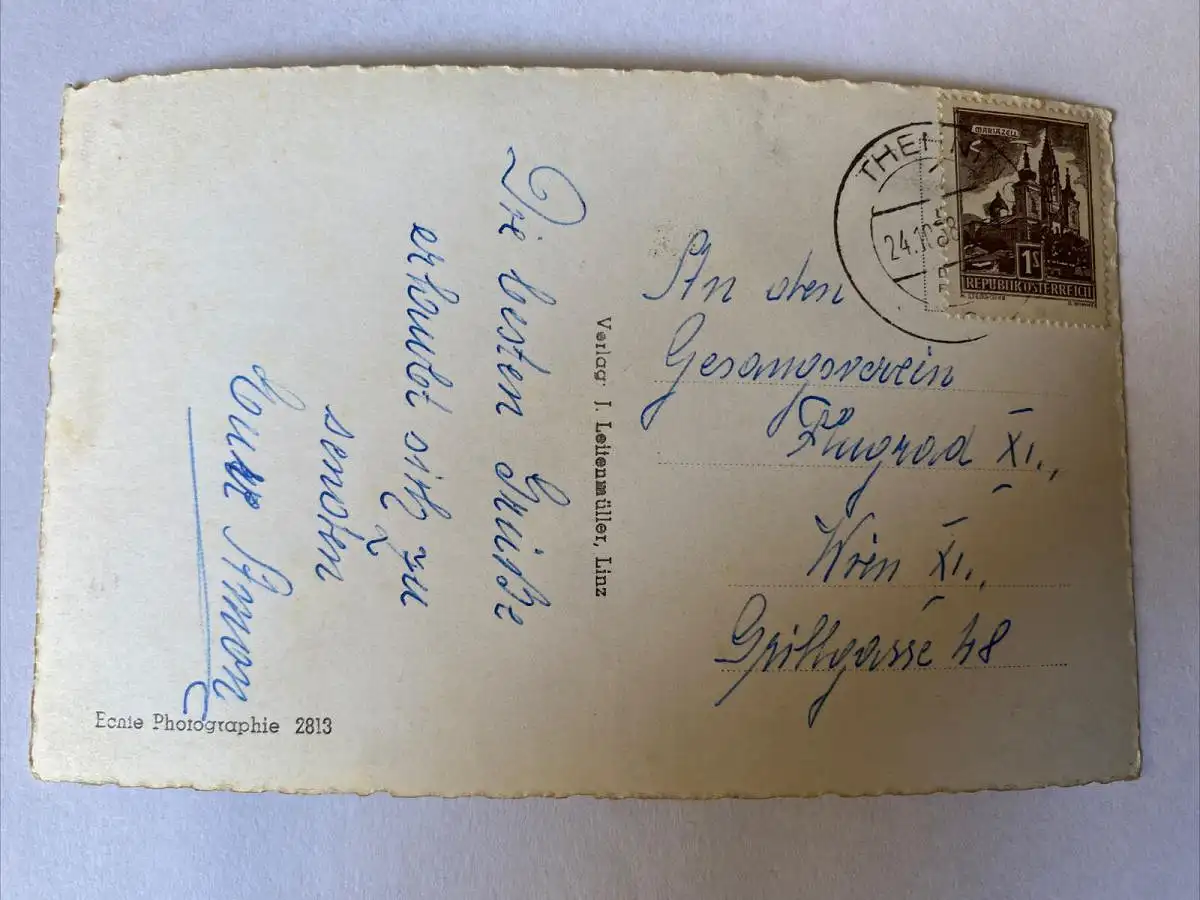 Die besten Grüße
erlaubt sich zu
senden
Simon
Verlag J. Leitenmüller, Linz
Echte Photographie 2813
An den
Gesangsverein
XI.,
Wien XI.,
Grillgasse 48
24.10.58
MARIAZELL
1S
REPUBLIK ÖSTERREICH